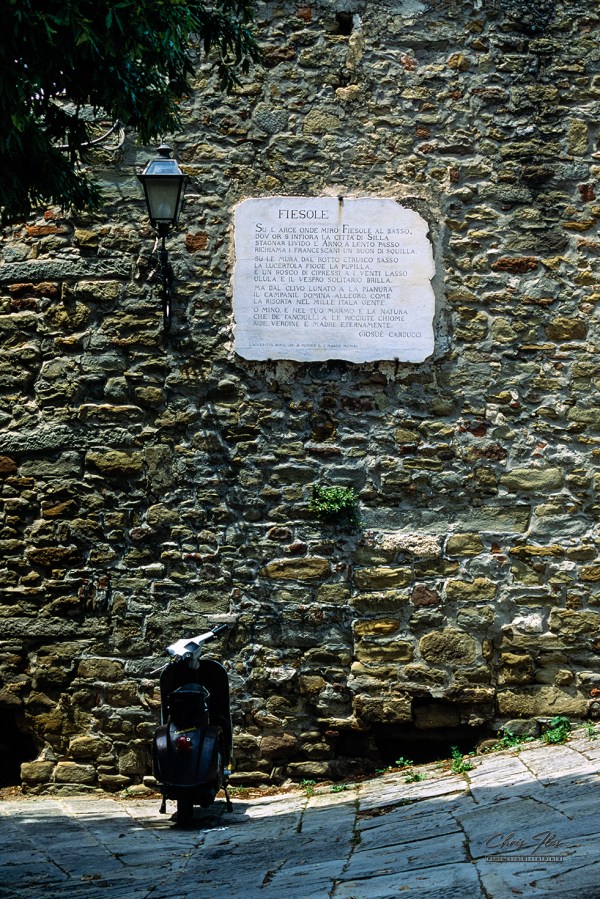 FIESOLE
SU L'ARCE ONDE MIRÒ FIESOLE AL BASSO,
DOV'OR S'INFIORA LA CITTÀ DI SILLA
STAGNAR LIVIDO E ARNO A LENTO PASSO
RICHIAMA I FRANCESCANI UN SUON DI SQUILLA.
SU LE MURA DAL ROTTO ETRUSCO SASSO
LA LUCERTOLA FIGGE LA PUPILLA,
E UN BOSCO DI CIPRESSI A I VENTI LASSO
ULULA E IL VESPRO SOLITARIO BRILLA.
MA DAL CLIVO LUNATO A LA PIANURA
IL CAMPANIL DOMINA ALLEGRO, COME
LA RISORTA NEL MILLE ITALA GENTE.
O MINO, E NEL TUO MARMO È LA NATURA
CHE DE' FANCIULLI A LE RICCIUTE CHIOME
RIDE, VERGINE E MADRE ETERNAMENTE.
GIOSUÈ CARDUCCI
Chris Iles